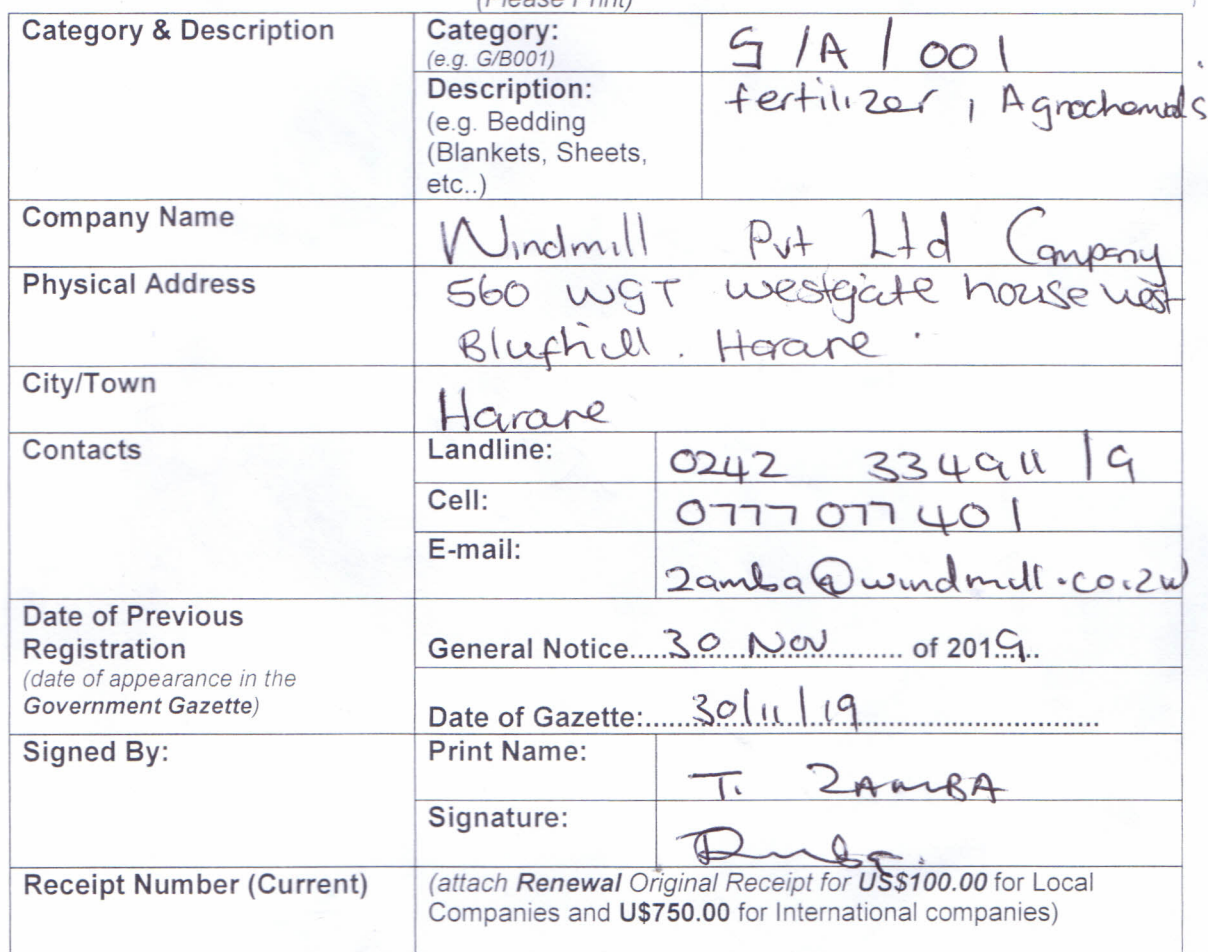 (Please Print)
Category & Description
Category:
(e.g. G/B001)
G /A / 001
Description:
(e.g. Bedding
(Blankets, Sheets,
etc..)
fertilizer, Agrochemals
Company Name
Windmill Pvt Ltd Company
Physical Address
560 WGT westgate house west
Blufhill. Harare.
City/Town
Harare
Contacts
Landline:
0242 334911 /9
Cell:
0777 077 401
E-mail:
zamba@windmill.co.zw
Date of Previous
Registration
(date of appearance in the
Government Gazette)
General Notice.....30 Nov........... of 2019..
Date of Gazette:......30/11/19....................................
Signed By:
Print Name:
T. ZAMBA
Signature:
Receipt Number (Current)
(attach Renewal Original Receipt for US$100.00 for Local
Companies and U$750.00 for International companies)